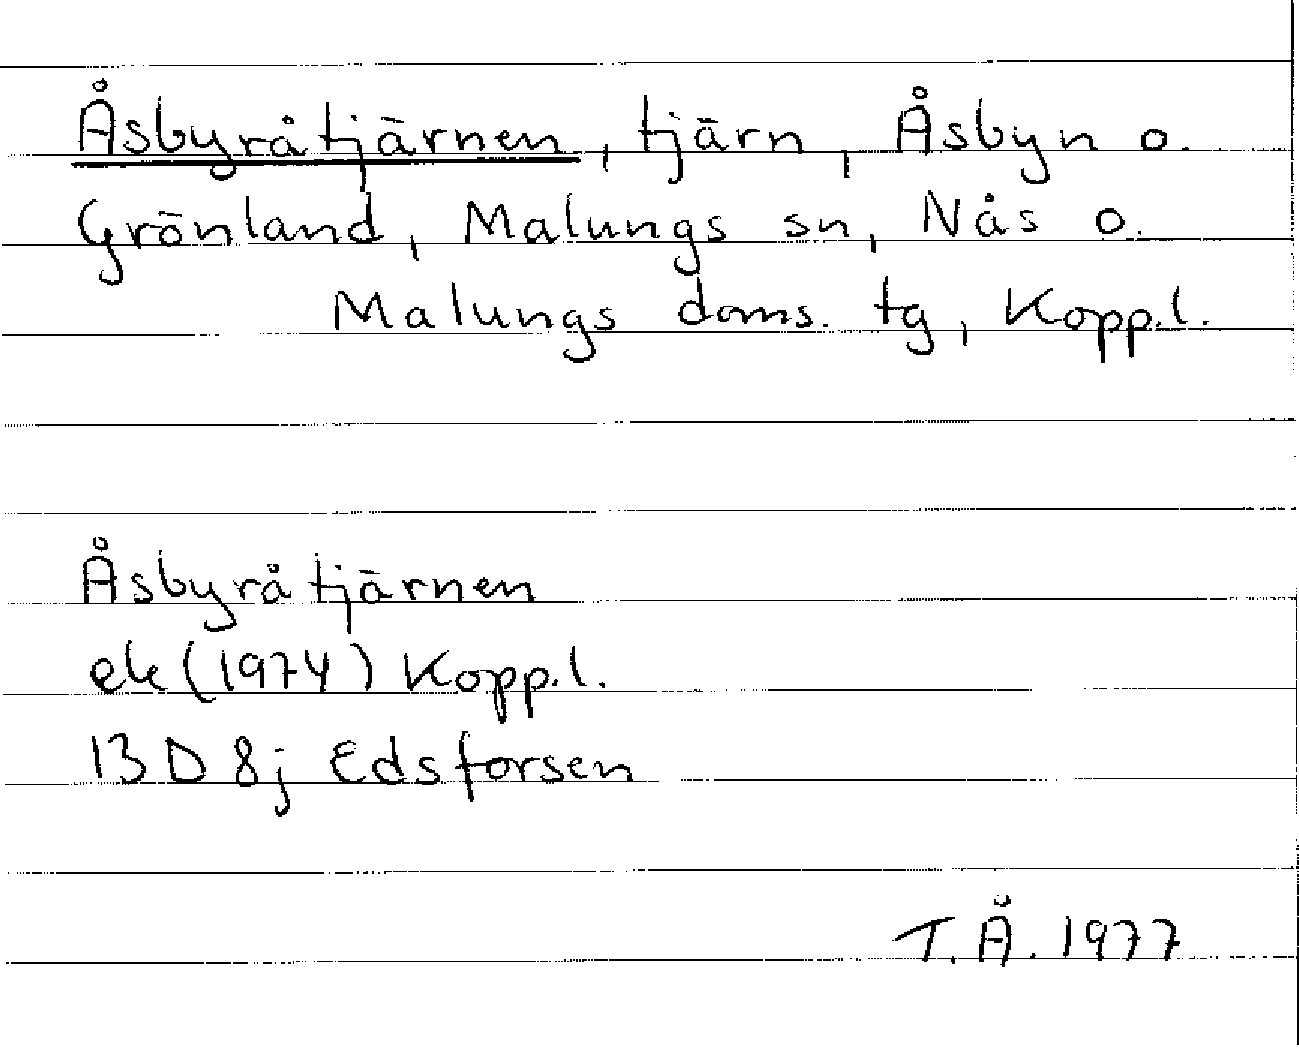 Åsbyråtjärnen, tjärn, Åsbyn o.
Grönland, Malungs sn, Nås o.
Malungs doms. tg, Kopp.l.
Åsbyråtjärnen
ek (1974) Kopp.l.
13 D 8j Edsforsen
T.Å. 1977